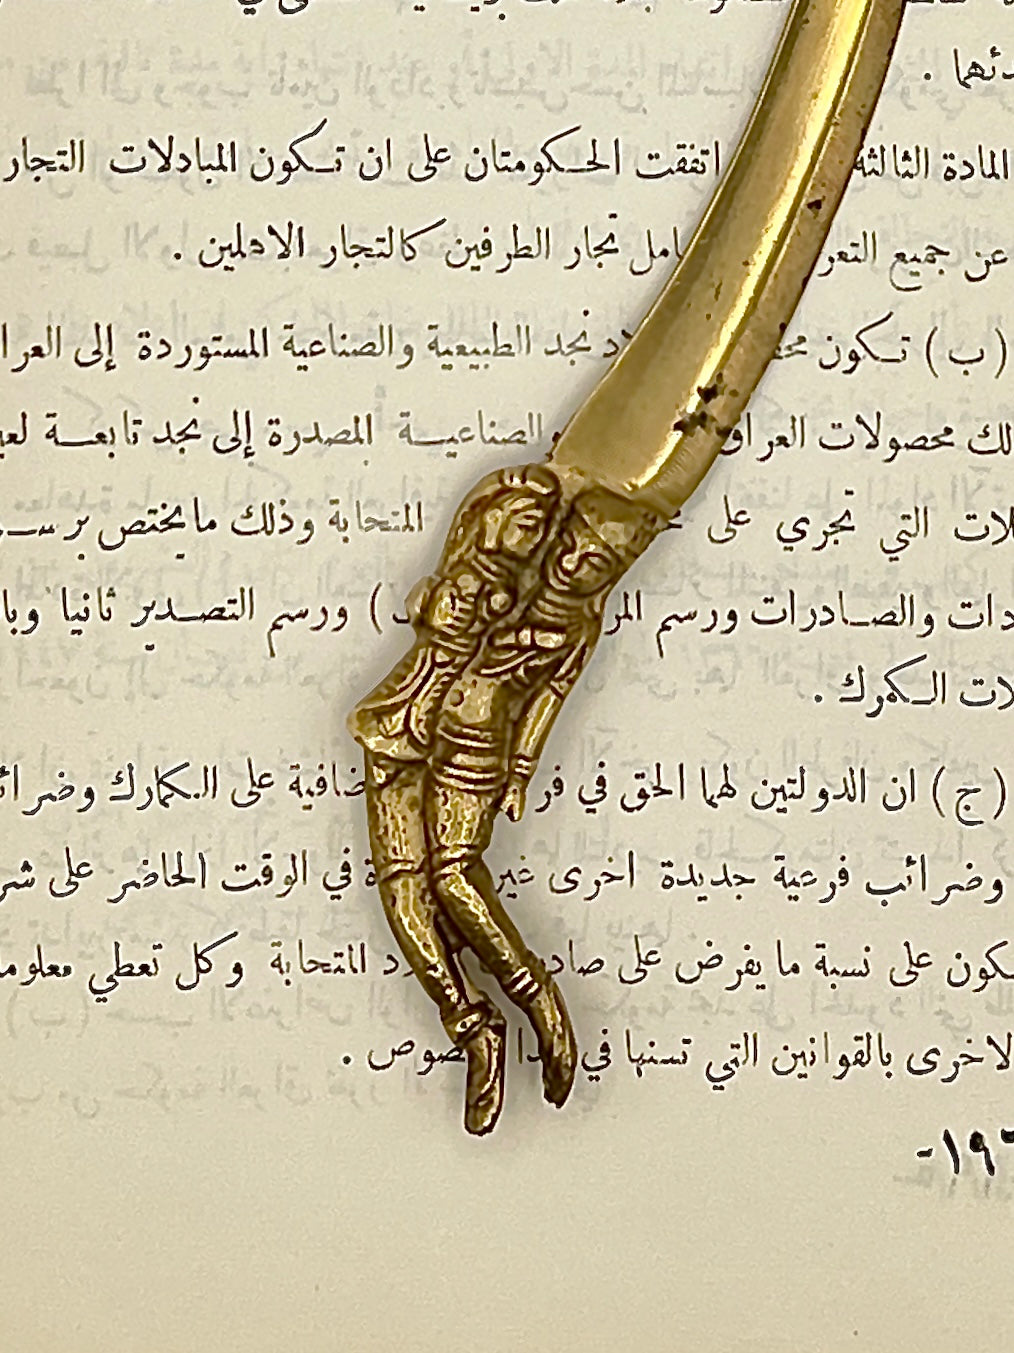 دئهما .
المادة الثالثة اتفقت الحكومتان على ان تكون المبادلات التجار
عن جميع التعر امل تجار الطرفين كالتجار الاهلين .
( ب ) تكون مح د نجد الطبيعية والصناعية المستوردة إلى العرا
لك محصولات العراق والصناعية المصدرة إلى نجد تابعة لعي
لات التي تجري على المتحابة وذلك ما يختص برس
دات والصادرات ورسم المر ) ورسم التصدير ثانيا وبا
لات الكمرك .
( ج ) ان الدولتين لهما الحق في فر ضافية على الكمارك وضرائ
وضرائب فرعية جديدة اخرى غير ة في الوقت الحاضر على شر
كون على نسبة ما يفرض على صاد د المتحابة وكل تعطي معلوم
لاخرى بالقوانين التي تسنها في دا صوص .
-١٩٦